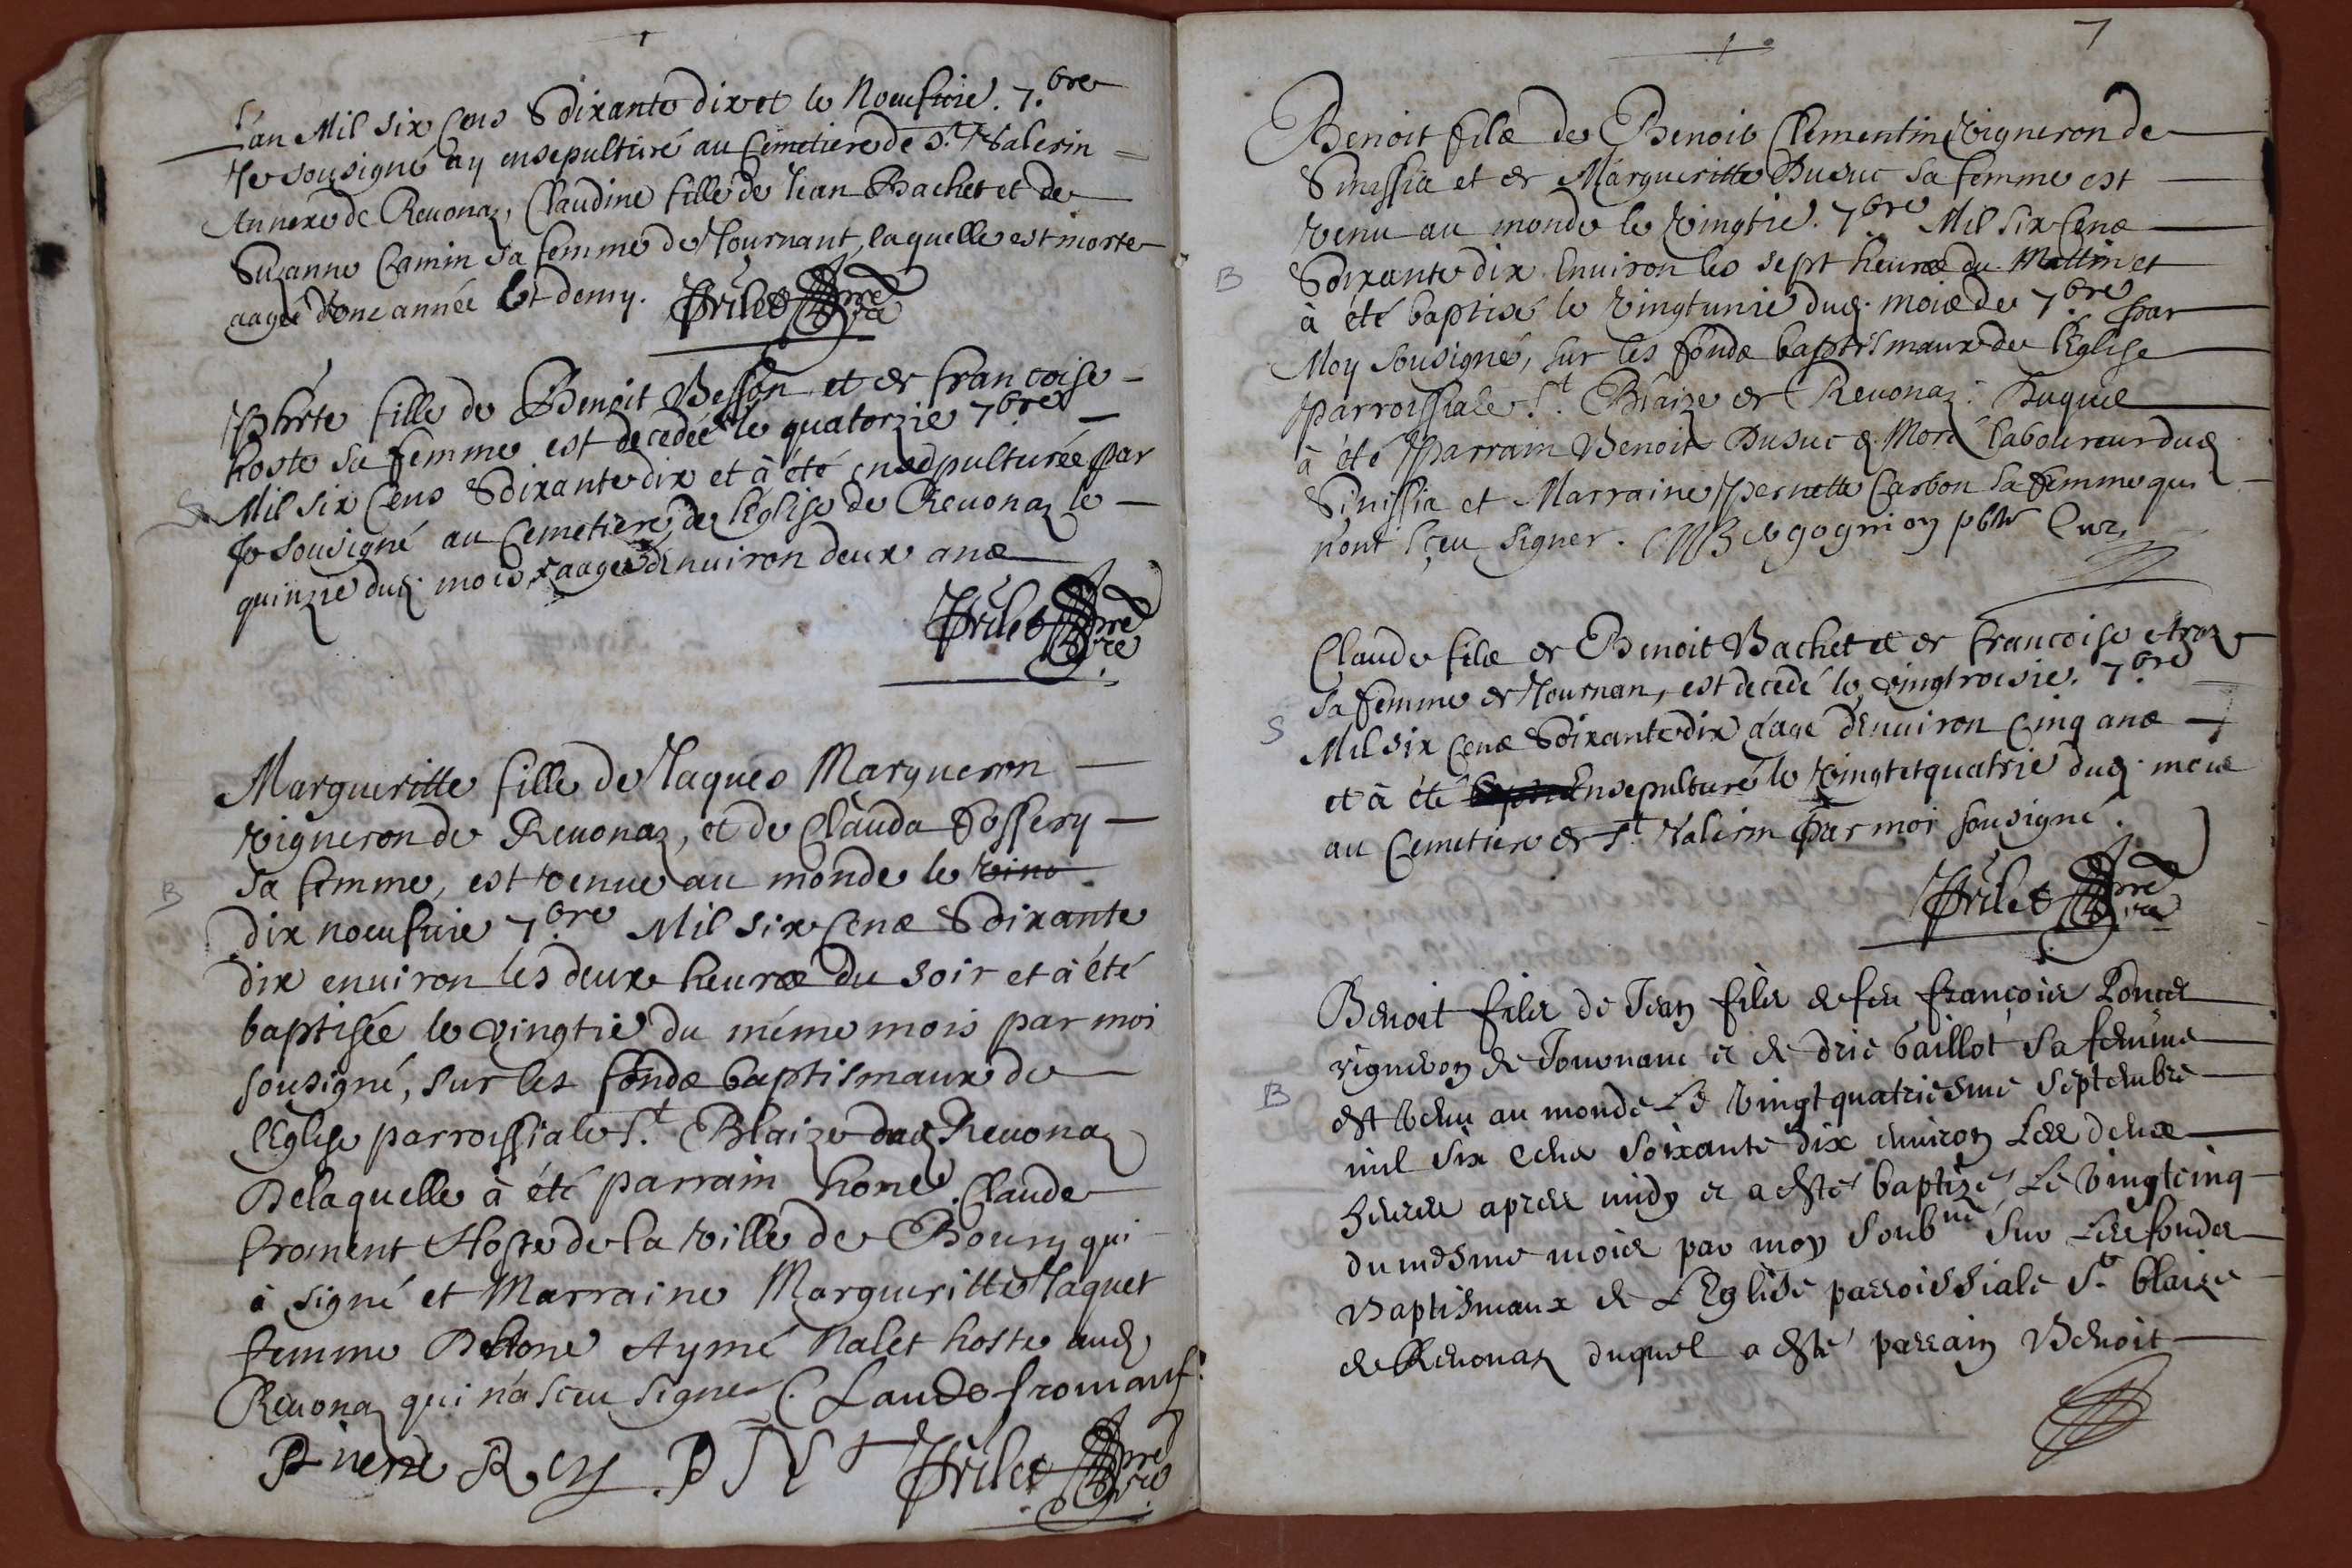 L'an Mil six Cens Soixante dix et le Noeufuie. 7.bre
Je sousigné ay ensepulturé au Cemetiere de St. Valerin
Annexe de Reuonaz, Claudine fille de Jean Bachet et de
Suzanne Camin sa femme de Tournant, laquelle est morte
aagée d'one année et demy. Frilet pre vre
Phrte fille de Benoit Besson et de francoise
hoste sa femme est decedée le quatorzie 7bre
S Mil six Cens Soixante dix et à été ensepulturée par
Je sousigné au Cemetiere de l'Eglise de Reuonaz le
quinzie dud. mois, aagée d'enuiron deux ans
Frilet pre vre
Margueritte fille de Jaques Margueron
vigneron de Reuonaz, et de Clauda Fossery
B sa femme, est venue au monde le
dix noeufuie 7.bre Mil six Cens Soixante
dix enuiron les deux heures du soir et à été
baptisée le vingtie du méme mois par moi
sousigné, sur les fonds baptismaux de
l'Eglise parroissiale St. Blaize dud. Reuonaz
De laquelle à été parrain hone. Claude
froment Hoste de la ville de Bourg qui
à signé et Marraine Margueritte Jaquet
femme De hone Aymé Nalet hoste aud.
Reuonaz qui n'a sceu signer. Claude fromant
Pierre Rey. Frilet pre vre
7
Benoit fils de Benoit Clementin vigneron de
Sinissia et de Margueritte Dusuc sa femme est
venu au monde le vingtie. 7bre Mil six Cens
B Soixante dix Enuiron les sept heures du Mattin et
à été baptisé le vingtunie dud. mois de 7.bre par
Moy sousigné, sur les fonds baptismaux de l'Eglise
parroissiale St. Blaize de Reuonaz: Duquel
à été Parrain Benoit Dusuc d. Moré laboureur dud.
Sinissia et Marraine Pernette Carbon sa femme qui
n'ont sceu signer. gognion pbtr Cur.
Claude fils de Benoit Bachet et de francoise
sa femme de Tournan, est decedé le vingtroisie. 7.bre
S Mil six Cens Soixante dix d'agé d'enuiron Cinq ans
et à été Ensepulturé le vingt et quatrie dud. mois
au Cemetiere de St. Valerin par moi sousigné.
Frilet pre vre
Benoit fils de Jean fils de feu françois Poncet
vigneron de Tournant et de drie baillot sa femme
B est venu au monde Le vingt quatriesme septembre
mil six cens soixante dix enuiron Les deux
heures apres midy et a esté baptizé Le vingt cinq
du mesme mois par moy soubné sur Les fonds
Baptismaux de L'Eglise parroissiale St. blaize
de Reuonaz duquel a esté parrain Benoit